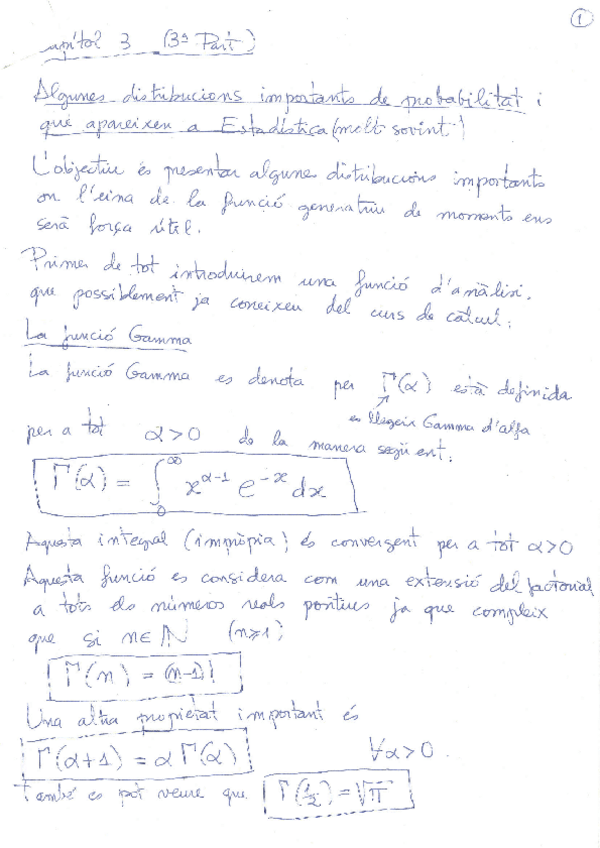 1
Capítol 3 (3ª Part)
Algunes distribucions importants de probabilitat i
que apareixen a Estadística (molt sovint)
L'objectiu és presentar algunes distribucions importants
on l'eina de la funció generatriu de moments ens
serà força útil.
Primer de tot introduirem una funció d'anàlisi,
que possiblement ja coneixeu del curs de càlcul:
La funció Gamma
La funció Gamma es denota per Γ(α) està definida
es llegeix Gamma d'alfa
per a tot α>0 de la manera següent:
Γ(α) = ∫₀^∞ x^(α-1) e^(-x) dx
Aquesta integral (impròpia) és convergent per a tot α>0
Aquesta funció es considera com una extensió del factorial
a tots els números reals positius ja que compleix
que si n∈ℕ (n≥1)
Γ(n) = (n-1)!
Una altra propietat important és
Γ(α+1) = α Γ(α) ∀α>0.
També es pot veure que Γ(1/2) = √π